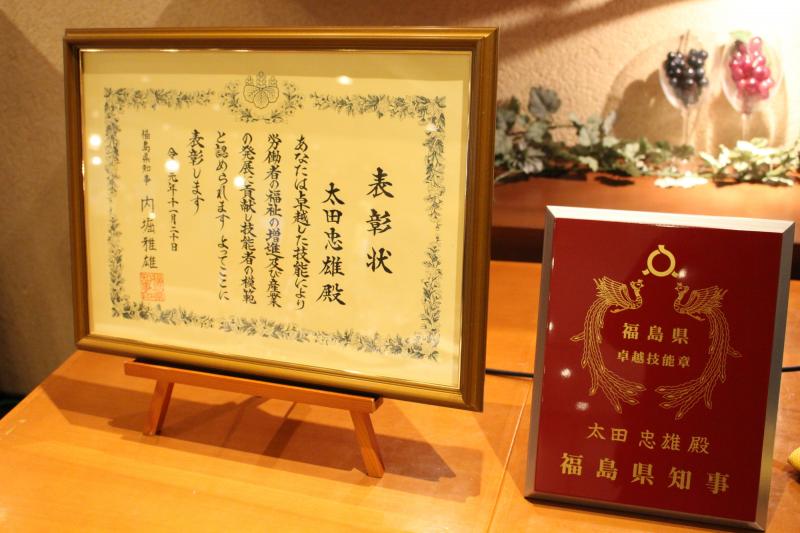 表彰状
太田忠雄殿
あなたは卓越した技能により
労働者の福祉の増進及び産業
の発展に貢献し技能者の模範
と認められます よってここに
表彰します
令和元年十一月二十日
福島県知事 内堀雅雄
福島県
卓越技能章
太田 忠雄 殿
福島県知事